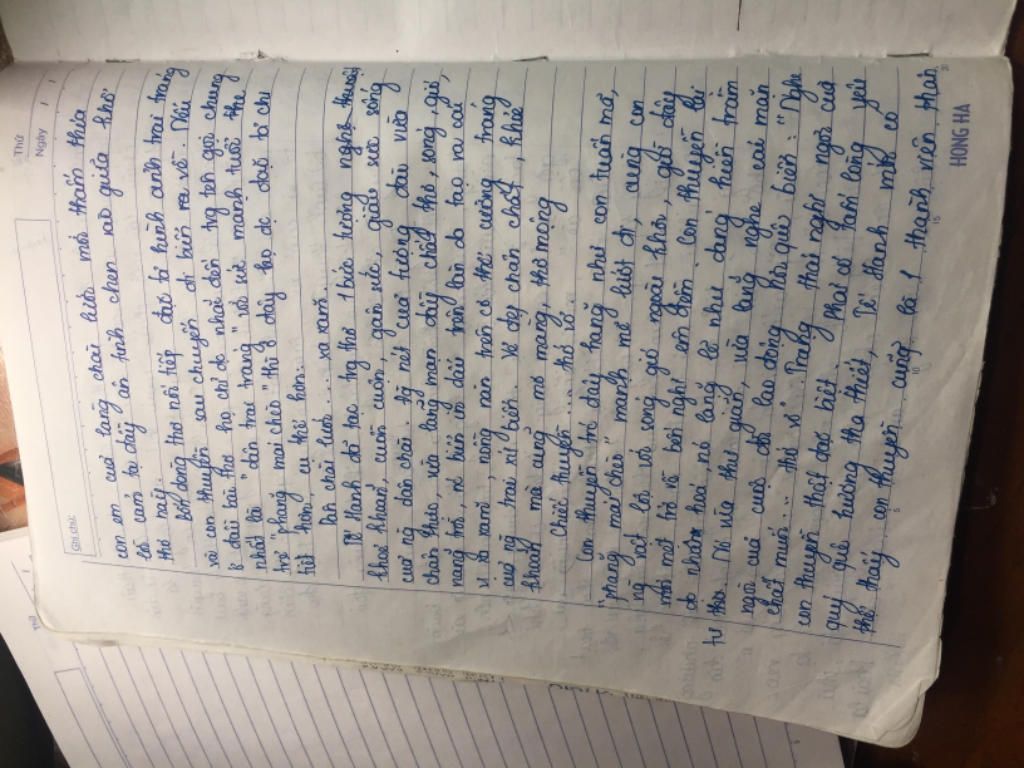 Thứ
Ngày
Ghi chú:
con em của làng chài lưới mới thấm thía
là cảm tự đầy ân tình chen vào giữa thơ
thơ này.
Bốn dòng thơ nối tiếp đã tả hình ảnh trai tráng
với con thuyền sau chuyến đi biển ra về. Nếu
ở đầu bài thơ họ chỉ đc nhắc đến trg tên gọi chung
nhất là "dân trai tráng" với sức mạnh tuổi
trẻ "phăng mái chèo" thì ở đây họ đc đặc tả chi
tiết hơn, cụ thể hơn:
Dân chài lưới ... xa xăm.
Tế Hanh đã tạc trg thơ 1 bức tượng nghệ thuật
khoẻ khoắn, cuồn cuộn, gân sức, giàu sức sống
của ng dân chài. Từng nét của tượng đài vừa
chân thực, vừa lãng mạn đầy chất thơ, sóng, gió,
nắng trời, nc biển và đất trời bên làn da tạo ra cái
vị xa xăm, nồng nàn trên cơ thể cường tráng
của ng trai xứ biển. Vẻ đẹp chân chất, khoẻ
khoắn mà cũng mơ màng, thơ mộng
Chiếc thuyền ... thớ vỏ.
Con thuyền trc đây hăng như con tuấn mã,
"phăng mái chèo" mạnh mẽ lướt đi, cùng con
ng vật lộn với sóng gió ngoài khơi, giờ đây
mới mệt trở về bến nghỉ êm đềm. Con thuyền đã
đc nhân hoá, nó lặng lẽ như đang hiền trầm
tư
thư. Nó vừa thư giãn, vừa lắng nghe cái mặn
mòi của cuộc đời lao động nơi quê biển: "Nghe
chất muối... thớ vỏ". Trạng thái nghỉ ngơi của
con thuyền thật đặc biệt. Phải có tấm lòng yêu
quý quê hương tha thiết, Tế Hanh mới có
thể thấy con thuyền cũng là 1 thành viên thân
5
10
15
20
HONG HA